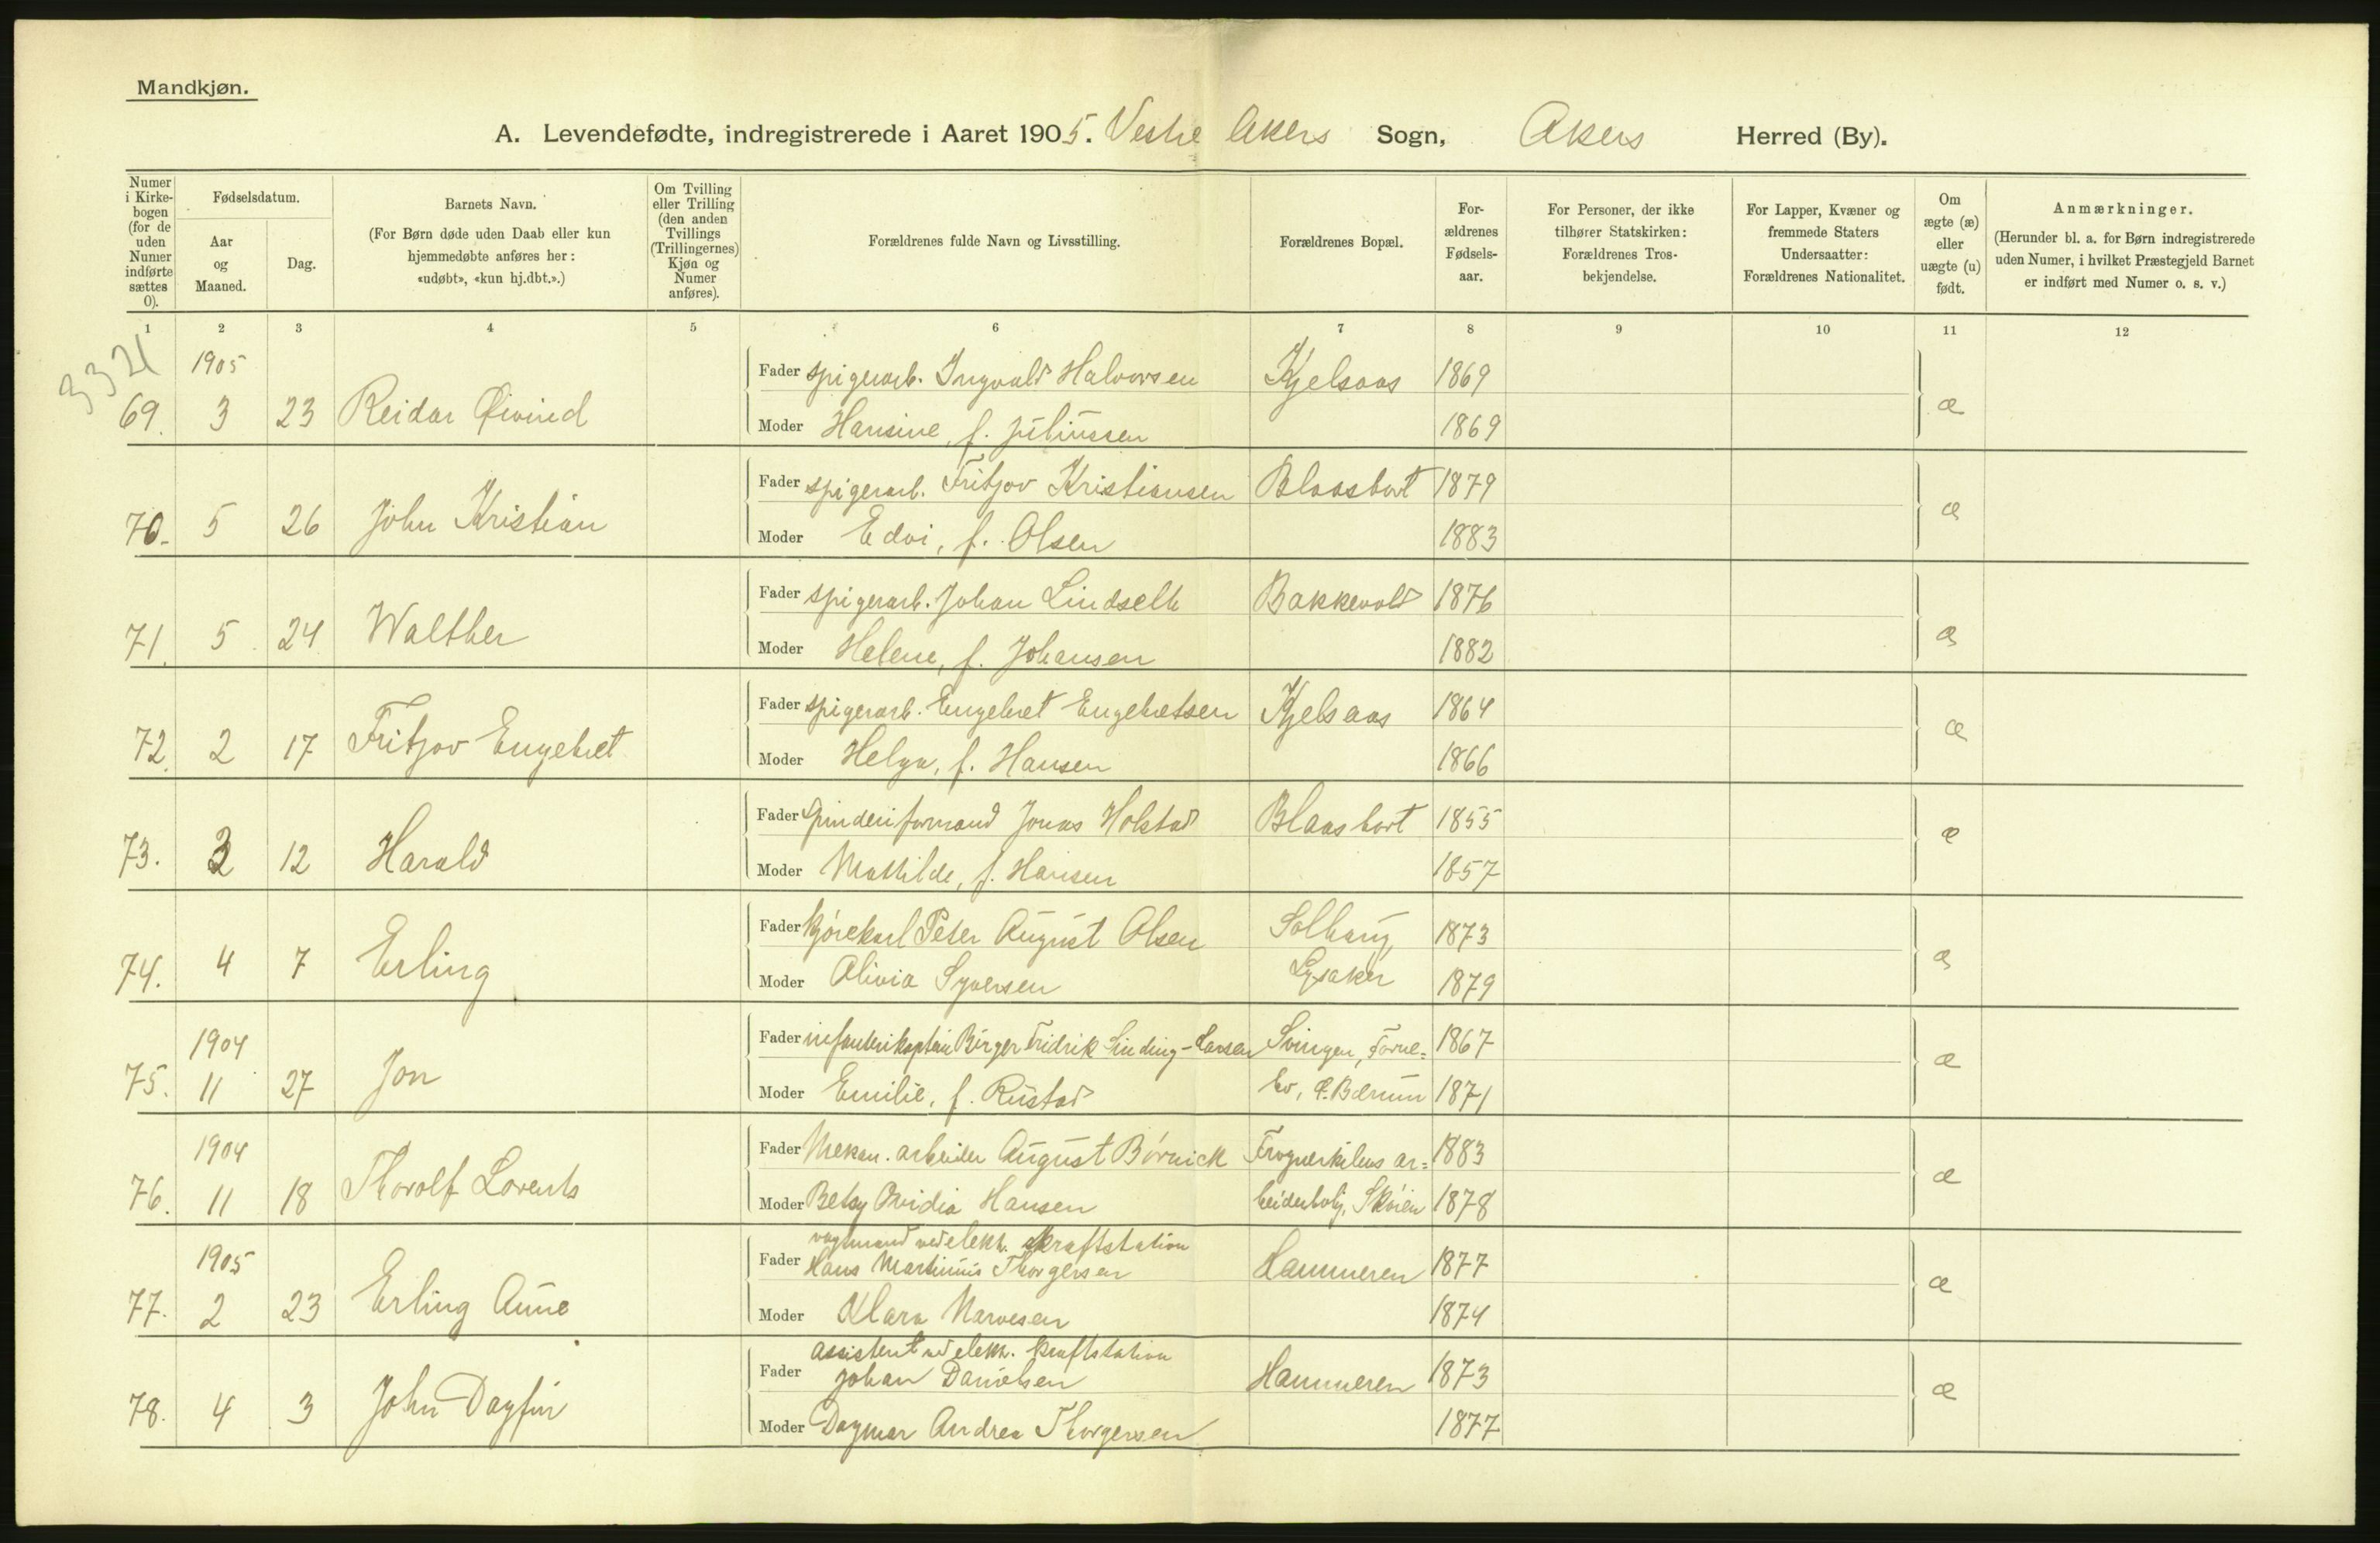 Mandkjøn.
A. Levendefødte, indregistrerede i Aaret 1905. Vestre Akers Sogn, Akers Herred (By).
Numer i Kirke-bogen (for de uden Numer indførte sættes 0).
Fødselsdatum.
Aar og Maaned.
Dag.
Barnets Navn.
(For Børn døde uden Daab eller kun hjemmedøbte anføres her: «udøbt», «kun hj.dbt.».)
Om Tvilling eller Trilling (den anden Tvillings (Trillingernes) Kjøn og Numer anføres).
Forældrenes fulde Navn og Livsstilling.
Forældrenes Bopæl.
For-ældrenes Fødsels-aar.
For Personer, der ikke tilhører Statskirken: Forældrenes Tros-bekjendelse.
For Lapper, Kvæner og fremmede Staters Undersaatter: Forældrenes Nationalitet.
Om ægte (æ) eller uægte (u) født.
Anmærkninger.
(Herunder bl. a. for Børn indregistrerede uden Numer, i hvilket Præstegjeld Barnet er indført med Numer o. s. v.)
1 2 3 4 5 6 7 8 9 10 11 12
1905 Fader spigerarb. Ingvald Halvorsen Kjelsaas 1869
69. 3 23 Reidar Øivind Moder Hansine, f. Juliussen 1869 æ
Fader spigerarb. Fritjov Kristiansen Blaasbort 1879
70. 5 26 John Kristian Moder Edvi, f. Olsen 1883 æ
Fader spigerarb. Johan Lindseth Bakkevold 1876
71. 5 24 Walther Moder Helene, f. Johansen 1882 æ
Fader spigerarb. Engebret Engebretsen Kjelsaas 1864
72. 2 17 Fritjov Engebret Moder Helga, f. Hansen 1866 æ
Fader spinderiformand Jonas Holstad Blaasbort 1855
73. 3 12 Harald Moder Mathilde, f. Hansen 1857 æ
Fader kjørekarl Peter August Olsen Solhaug, 1873
74. 4 7 Erling Moder Olivia Syversen Lysaker 1879 æ
1904 Fader infanterikaptain Birger Fridrik Sinding-Larsen Svingen, Forne= 1867
75. 11 27 Jon Moder Emilie, f. Rustad bo, Ø. Bærum 1871 æ
1904 Fader Mekan. arbeider August Børnick Frognerkilens ar= 1883
76. 11 18 Thorolf Lorents Moder Betsy Ovidia Hansen beiderbolig, Skøien 1878 æ
vagtmand ved elektr. kraftstation
1905 Fader Hans Martinius Thorgersen Hammeren 1877
77. 2 23 Erling Aune Moder Klara Narvesen 1874 æ
assistent ved elektr. kraftstation
Fader Johan Danielsen Hammeren 1873
78. 4 3 John Dagfin Moder Dagmar Andrea Thorgersen 1877 æ